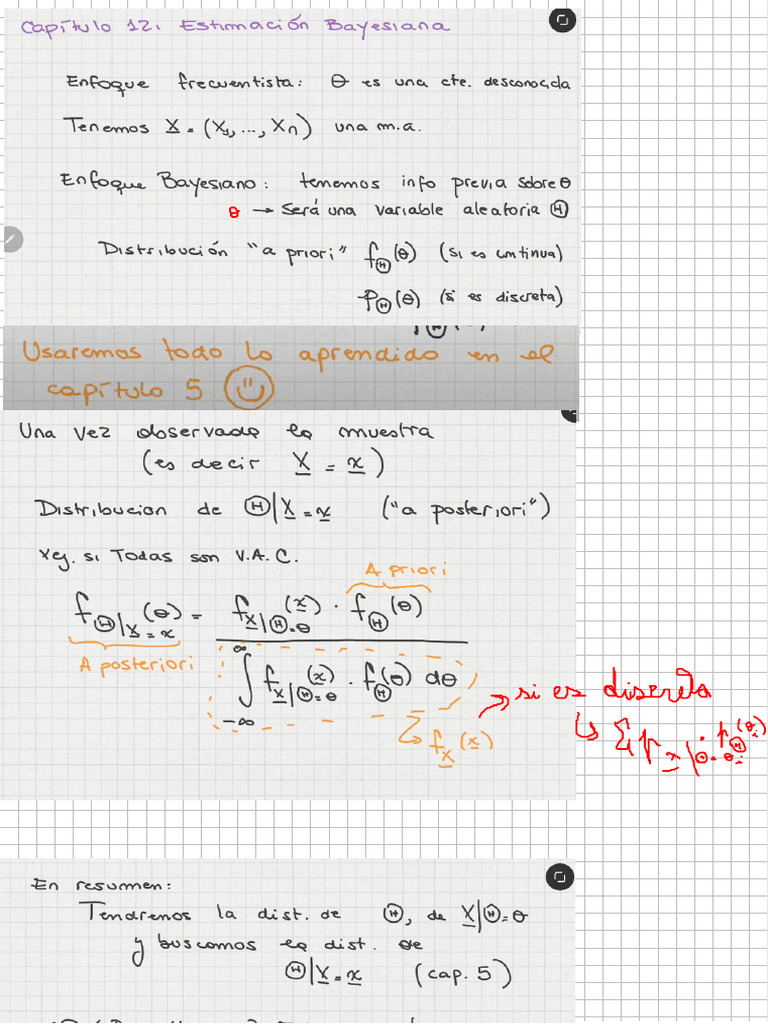 Capítulo 12: Estimación Bayesiana
Enfoque frecuentista: θ es una cte. desconocida
Tenemos X = (X₁, ..., Xn) una m.a.
Enfoque Bayesiano: tenemos info previa sobre θ
θ → Será una variable aleatoria Ⓗ
Distribución "a priori" f_Ⓗ(θ) (si es continua)
p_Ⓗ(θ) (si es discreta)
Usaremos todo lo aprendido en el
capítulo 5 ☺
Una vez observada la muestra
(es decir X = x)
Distribucion de Ⓗ|X = x ("a posteriori")
si Todas son V.A.C.
A priori
f_Ⓗ|X=x(θ) = f_X|Ⓗ=θ(x) · f_Ⓗ(θ)
A posteriori
∫_{-∞}^{∞} f_X|Ⓗ=θ(x) · f_Ⓗ(θ) dθ
→ si es discreta
↳ f_X(x)
↳ Σ p_x|Θ=θi · p_Ⓗ(θi)
En resumen:
Tendremos la dist. de Ⓗ, de X|Ⓗ=θ
y buscamos la dist. de
Ⓗ|X=x (cap. 5)